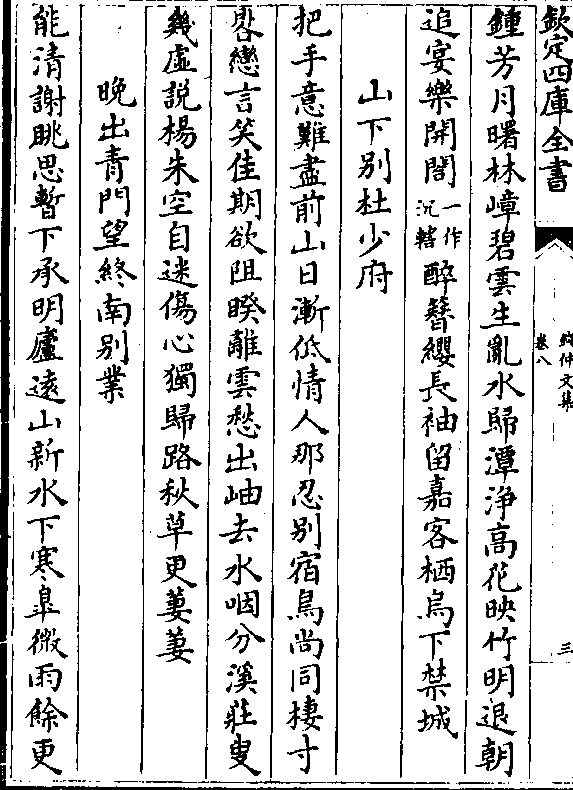 欽定四庫全書
錢仲文集
卷八
三
鍾芳月曙林嶂碧雲生亂水歸潭淨高花映竹明退朝
追宴樂開閤一作沉轄醉簪纓長袖留嘉客栖烏下禁城
山下別杜少府
把手意難盡前山日漸低情人那忍別宿鳥尚同棲寸
晷戀言笑佳期欲阻暌離雲愁出岫去水咽分溪莊叟
幾虛說楊朱空自迷傷心獨歸路秋草更萋萋
晚出青門望終南別業
能清謝眺思暫下承明廬遠山新水下寒皐微雨餘更